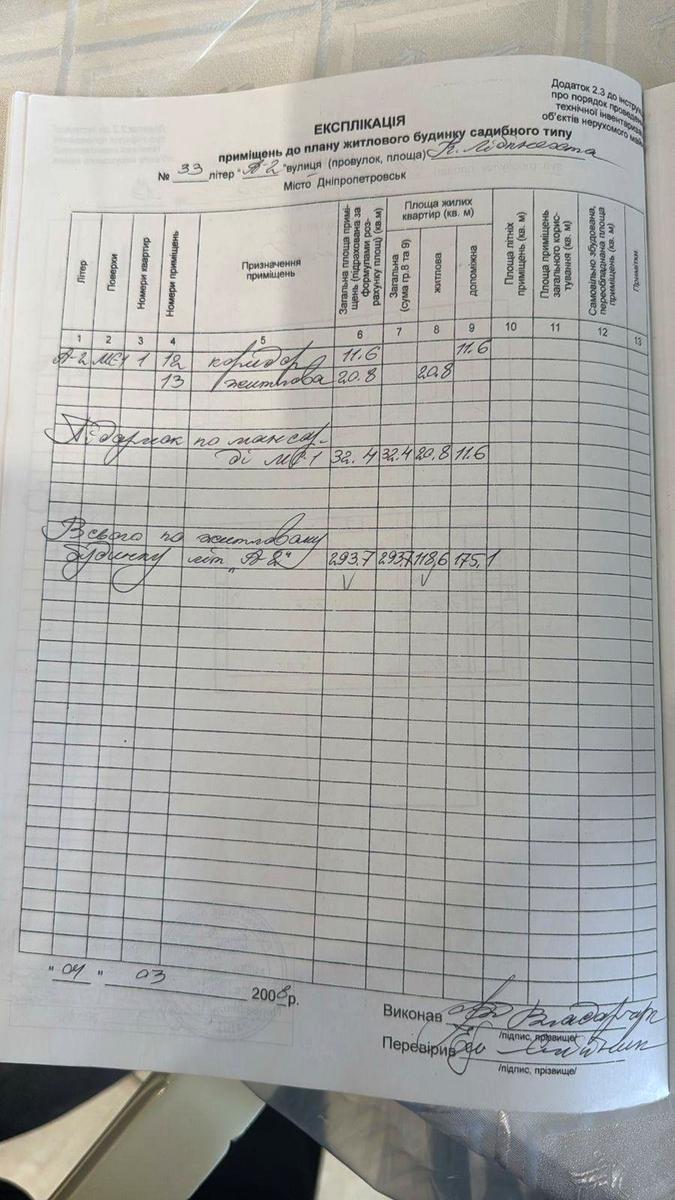 Додаток 2.3 до інструк
про порядок проведен
технічної інвентариза
об'єктів нерухомого май
ЕКСПЛІКАЦІЯ
приміщень до плану житлового будинку садибного типу
№ 33 літер "А-2" вулиця (провулок, площа) К. Лібкнехта
Місто Дніпропетровськ
Літер
Поверхи
Номери квартир
Номери приміщень
Призначення приміщень
Загальна площа примі-
щень (підрахована за
формулами роз-
рахунку площ) (кв.м)
Площа жилих
квартир (кв. м)
Загальна
(сума гр.8 та 9)
житлова
допоміжна
Площа літніх
приміщень (кв. м)
Площа приміщень
загального корис-
тування (кв. м)
Самовільно збудована,
переобладнана площа
приміщень (кв. м)
Примітки
1 2 3 4 5 6 7 8 9 10 11 12 13
А-2 1 12 коридор 11.6 11.6
13 житлова 20.8 20.8
Підсумок по мансар-
ді 32.4 32.4 20.8 11.6
Всього по житловому
будинку літ "А-2" 293.7 293.7 118,6 175,1
2008р.
Виконав
/підпис, прізвище/
Перевірив
/підпис, прізвище/